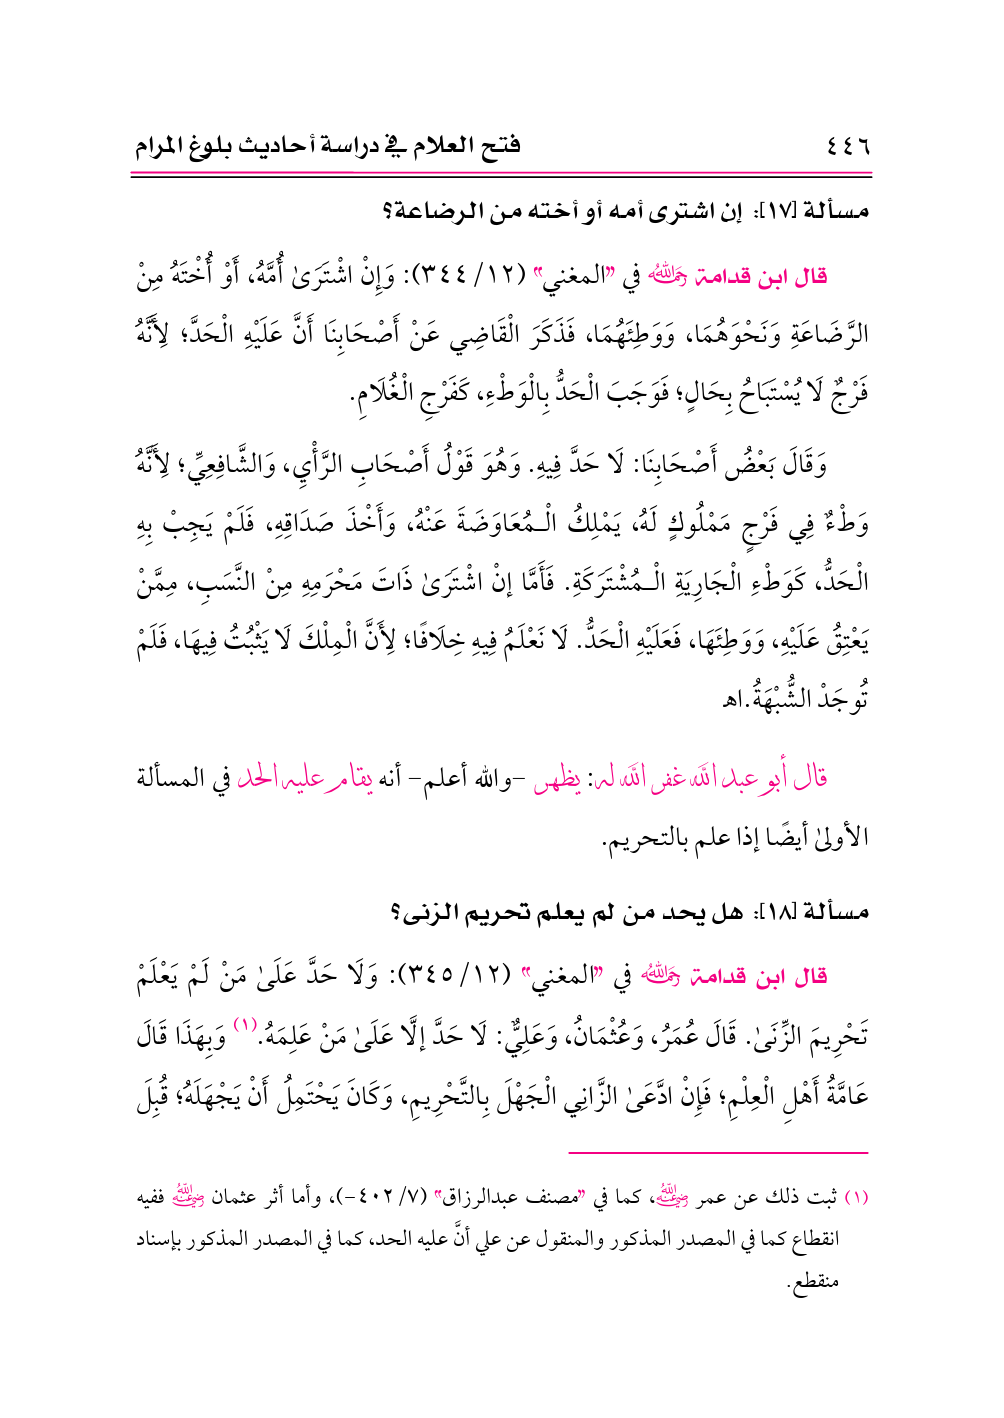 ٤٤٦ فتح العلام في دراسة أحاديث بلوغ المرام
مسألة [١٧]: إن اشترى أمه أو أخته من الرضاعة؟
قال ابن قدامة رحمه الله في "المغني" (١٢/ ٣٤٤): وَإِنْ اشْتَرَىٰ أُمَّهُ، أَوْ أُخْتَهُ مِنْ
الرَّضَاعَةِ وَنَحْوَهُمَا، وَوَطِئَهُمَا، فَذَكَرَ الْقَاضِي عَنْ أَصْحَابِنَا أَنَّ عَلَيْهِ الْحَدَّ؛ لِأَنَّهُ
فَرْجٌ لَا يُسْتَبَاحُ بِحَالٍ؛ فَوَجَبَ الْحَدُّ بِالْوَطْءِ، كَفَرْجِ الْغُلَامِ.
وَقَالَ بَعْضُ أَصْحَابِنَا: لَا حَدَّ فِيهِ. وَهُوَ قَوْلُ أَصْحَابِ الرَّأْيِ، وَالشَّافِعِيِّ؛ لِأَنَّهُ
وَطْءٌ فِي فَرْجٍ مَمْلُوكٍ لَهُ، يَمْلِكُ الْـمُعَاوَضَةَ عَنْهُ، وَأَخْذَ صَدَاقِهِ، فَلَمْ يَجِبْ بِهِ
الْحَدُّ، كَوَطْءِ الْجَارِيَةِ الْـمُشْتَرَكَةِ. فَأَمَّا إنْ اشْتَرَىٰ ذَاتَ مَحْرَمِهِ مِنْ النَّسَبِ، مِمَّنْ
يَعْتِقُ عَلَيْهِ، وَوَطِئَهَا، فَعَلَيْهِ الْحَدُّ. لَا نَعْلَمُ فِيهِ خِلَافًا؛ لِأَنَّ الْمِلْكَ لَا يَثْبُتُ فِيهَا، فَلَمْ
تُوجَدْ الشُّبْهَةُ.اهـ
قال أبو عبد الله غفر الله له: يظهر -والله أعلم- أنه يقام عليه الحد في المسألة
الأولىٰ أيضًا إذا علم بالتحريم.
مسألة [١٨]: هل يحد من لم يعلم تحريم الزنى؟
قال ابن قدامة رحمه الله في "المغني" (١٢/ ٣٤٥): وَلَا حَدَّ عَلَىٰ مَنْ لَمْ يَعْلَمْ
تَحْرِيمَ الزِّنَىٰ. قَالَ عُمَرُ، وَعُثْمَانُ، وَعَلِيٌّ: لَا حَدَّ إلَّا عَلَىٰ مَنْ عَلِمَهُ.(١) وَبِهَذَا قَالَ
عَامَّةُ أَهْلِ الْعِلْمِ؛ فَإِنْ ادَّعَىٰ الزَّانِي الْجَهْلَ بِالتَّحْرِيمِ، وَكَانَ يَحْتَمِلُ أَنْ يَجْهَلَهُ؛ قُبِلَ
(١) ثبت ذلك عن عمر رضي الله عنه، كما في "مصنف عبدالرزاق" (٧/ ٤٠٢-)، وأما أثر عثمان رضي الله عنه ففيه
انقطاع كما في المصدر المذكور والمنقول عن علي أنَّ عليه الحد، كما في المصدر المذكور بإسناد
منقطع.